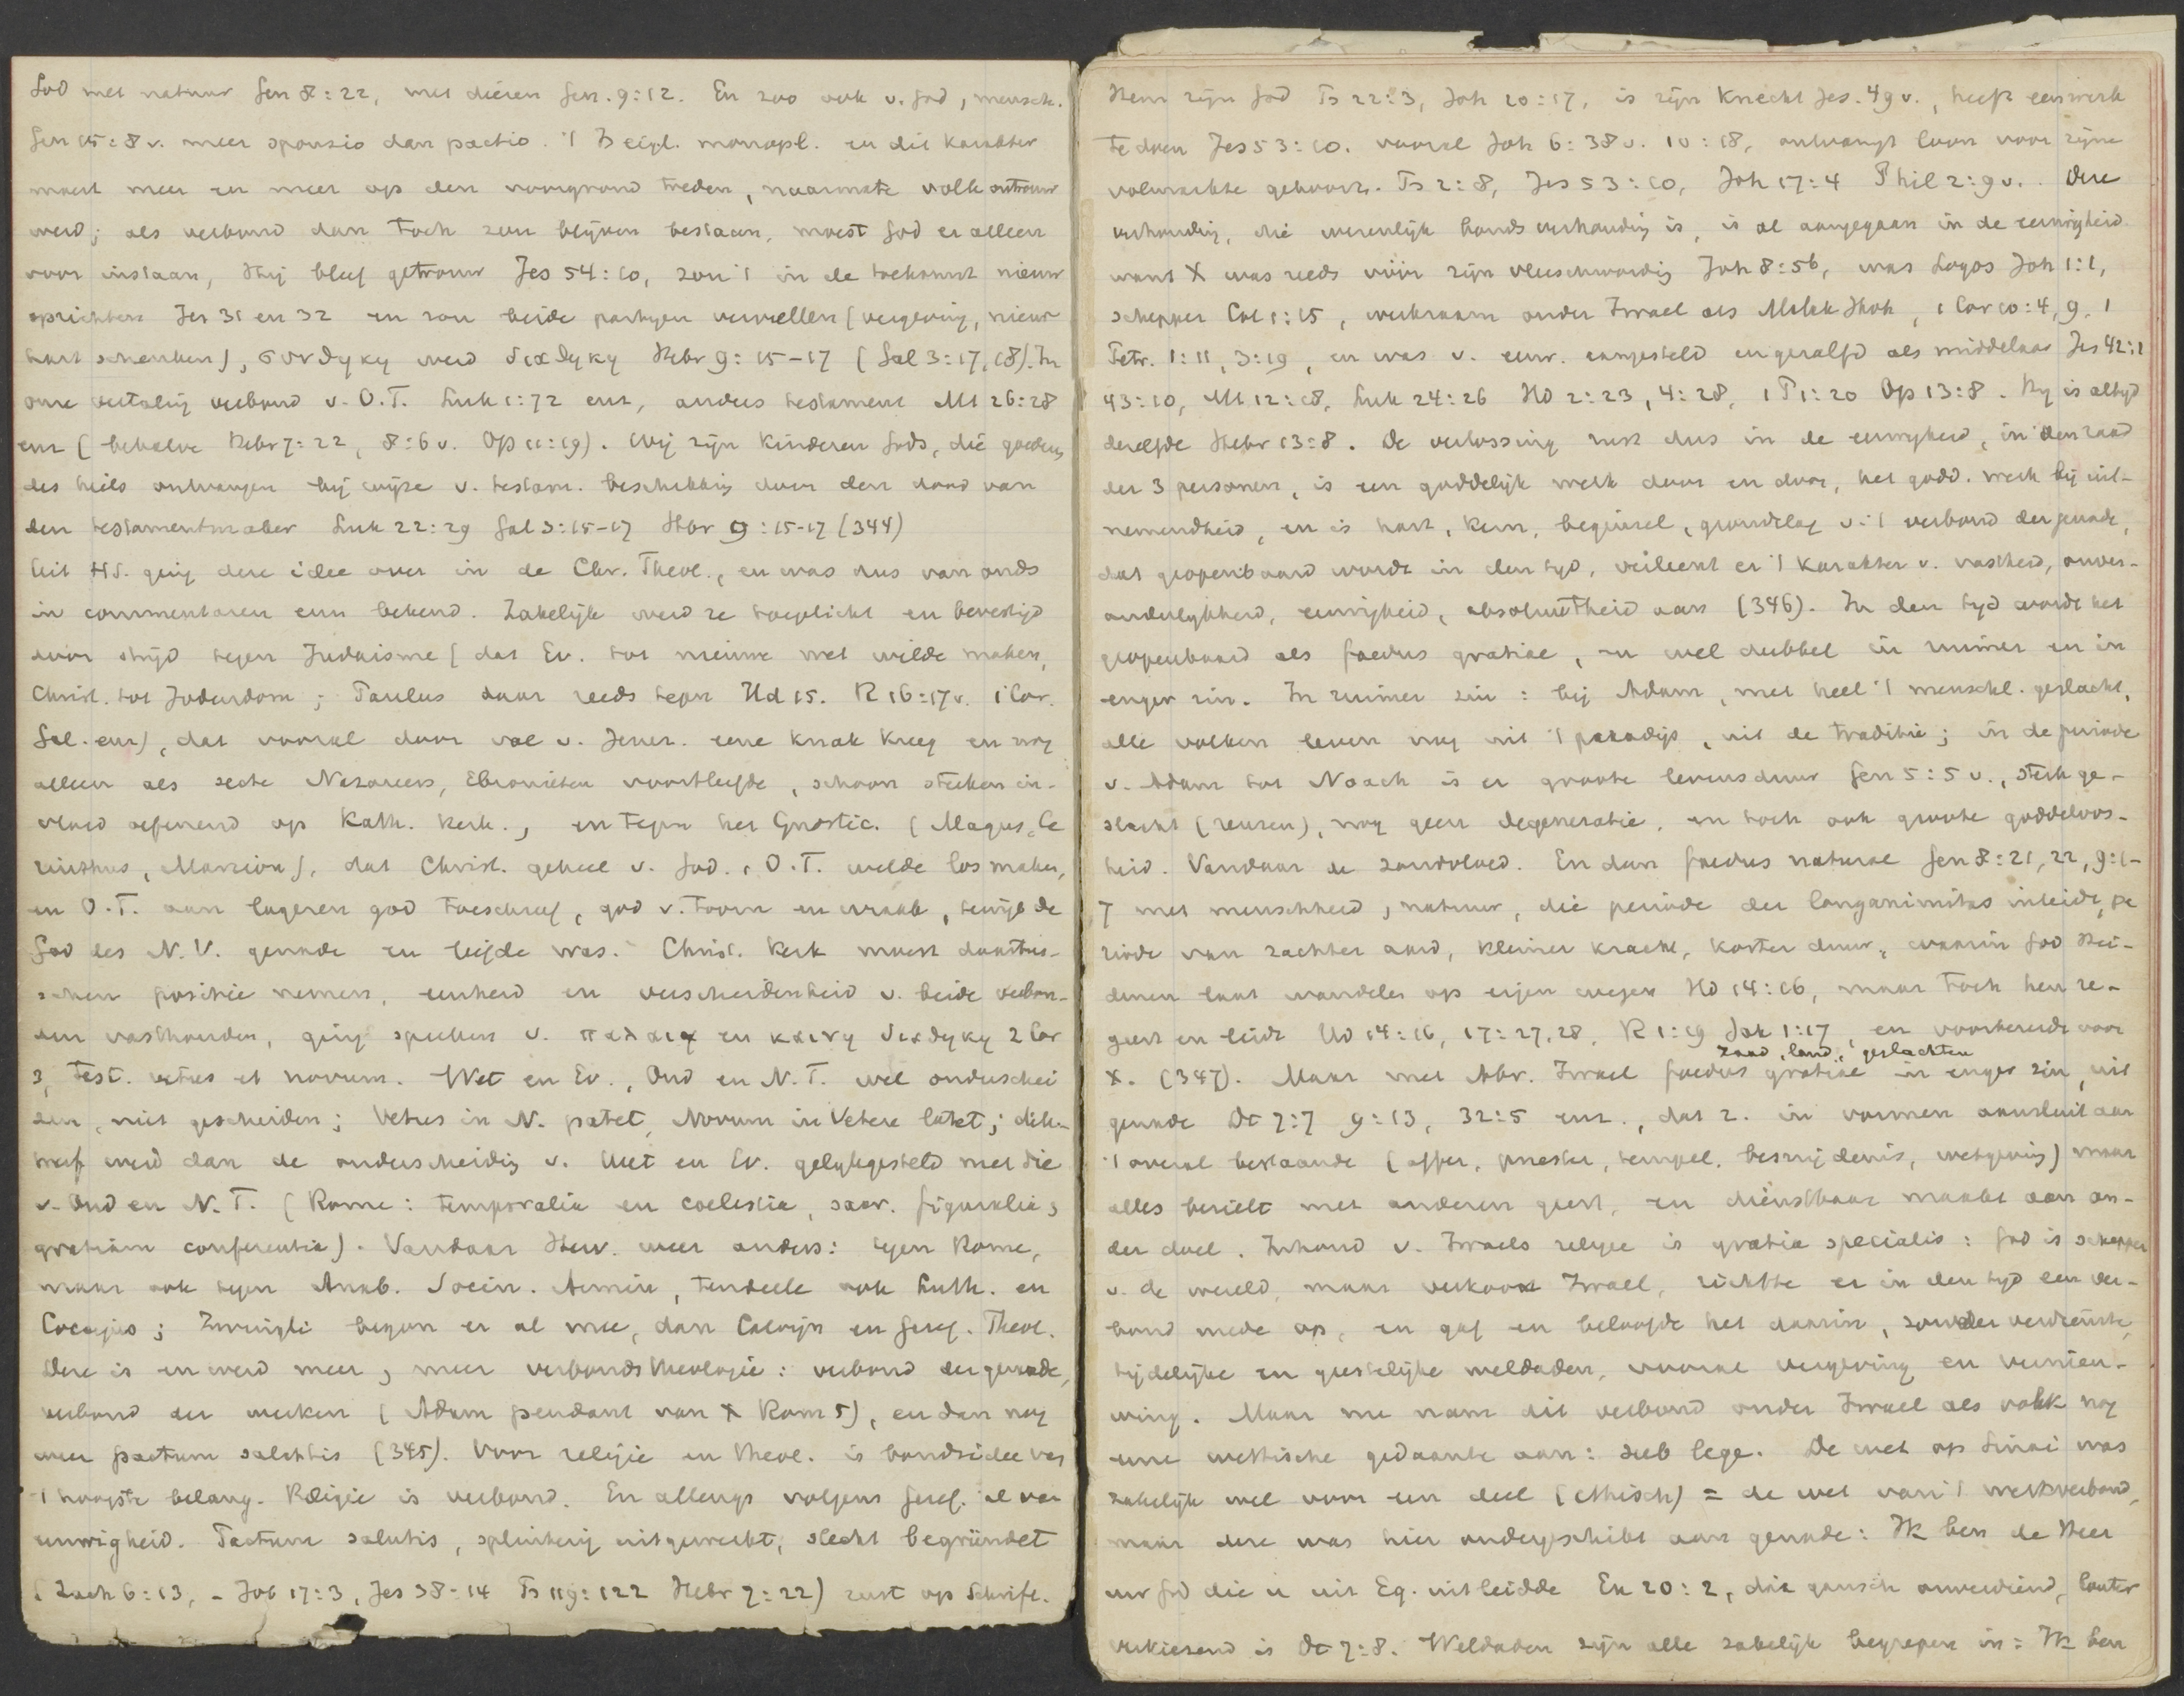 God met natuur Gen 8:22, met dieren Gen. 9:12. En zoo ook v. God, mensch.
Gen 15:8 v. meer sponsio dan pactio. 't Is eigl. monopl. en dit karakter
moest meer en meer op den voorgrond treden, naarmate volk ontrouw
werd; als verbond dan toch zou blijven bestaan, moest God er alleen
voor instaan, Hij bleef getrouw Jes 54:10, zou 't in de toekomst nieuw
oprichten Jer 31 en 32 en zou beide partijen vervullen (vergeving, nieuw
hart schenken), συνδηκη werd διαδηκη Hebr 9:15-17 (Gal 3:17,18). In
onze vertaling verbond v. O.T. Luk 1:72 enz, anders testament Mt 26:28
enz (behalve Hebr 7:22, 8:6 v. Op 11:19). Wij zijn kinderen Gods, die goederen
des heils ontvangen bij wijze v. testam. beschikking door den dood van
den testamentmaker Luk 22:29 Gal 3:15-17 Hbr 9:15-17 (344)
Uit HS. ging deze idee over in de Chr. Theol., en was dus van ouds
in commentaren enz bekend. Zakelijk werd ze toegelicht en bevestigd
door strijd tegen Judaisme (dat Ev. tot nieuwe wet wilde maken,
Christ. tot Jodendom; Paulus daar reeds tegen Hd 15. R 16:17 v. 1 Cor.
Gal. enz), dat vooral door val v. Jeruz. eene knak kreeg en nog
alleen als secte Nazareers, Ebionieten voortleefde, schoon sterken in-
vloed oefenend op Kath. kerk., en tegen het Gnostic. (Magus, Ce
rinthus, Marcion), dat Christ. geheel v. God. , O.T. wilde los maken,
en O.T. aan lageren god toeschreef, god v. toorn en wraak, terwijl de
God des N.V. genade en liefde was. Christ. kerk moest daartus-
schen positie nemen, eenheid en verscheidenheid v. beide verbon-
den vasthouden, ging spreken v. παλαια en καινη διαδηκη 2 Cor
3, Test. vetus et novum. Wet en Ev., Oud en N.T. wel onderschei
den, niet gescheiden; Vetus in N. patet, Novum in Vetere latet; dik-
werf werd dan de onderscheiding v. Wet en Ev. gelijkgesteld met die
v. Oud en N.T. (Rome: temporalia en coelestia, sacr. figuralia,
gratiam conferentia). Vandaar Herv. weer anders: tegen Rome,
maar ook tegen Anab. Socin. Armin, tendeele ook Luth. en
Coccejus; Zwingli begon er al mee, dan Calvijn en Geref. Theol.
Deze is en werd meer, meer verbondstheologie: verbond der genade,
verbond der werken (Adam pendant van X Rom 5), en dan nog
weer pactum salutis (345). Voor religie en theol. is bondsidee van
't hoogste belang. Religie is verbond. En allengs volgens Geref. al van
eeuwigheid. Pactum salutis, splinterig uitgewerkt, slecht begründet
(Zach 6:13, - Job 17:3, Jes 38:14 Ps 119:122 Hebr 7:22) rust op Schrift.
Hem zijn God Ps 22:3, Joh 20:17, is zijn knecht Jes. 49 v., heeft een werk
te doen Jes 53:10. vooral Joh 6:38 v. 10:18, ontvangt loon voor zijne
volmaakte gehoorz. Ps 2:8, Jes 53:10, Joh 17:4 Phil 2:9 v. Deze
verhouding, die wezenlijk bondsverhouding is, is al aangegaan in de eeuwigheid
want X was reeds vóór zijn vleeschwording Joh 8:56, was Logos Joh 1:1,
schepper Col 1:15, werkzaam onder Israel als Malak Jhvh, 1 Cor 10:4,9, 1
Petr. 1:11, 3:19, en was v. eeuw. aangesteld en gezalfd als middelaar Jes 42:1
43:10, Mt 12:18, Luk 24:26 Hd 2:23, 4:28, 1 P 1:20 Op 13:8. Hij is altijd
dezelfde Hebr 13:8. De verlossing rust dus in de eeuwigheid, in den raad
der 3 personen, is een goddelijk werk door en door, het godd. werk bij uit-
nemendheid, en is hart, kern, beginsel, grondslag v. 't verbond der genade,
dat geopenbaard wordt in den tijd, verleent er 't karakter v. vastheid, onver-
anderlijkheid, eeuwigheid, absoluutheid aan (346). In den tijd wordt het
geopenbaard als foedus gratiae, en wel dubbel in ruimer en in
enger zin. In ruimer zin: bij Adam, met heel 't menschl. geslacht,
alle volken leven nog uit 't paradijs, uit de traditie; in de periode
v. Adam tot Noach is er groote levensduur Gen 5:5 v., sterk ge-
slacht (reuzen), nog geen degeneratie, en toch ook groote goddeloos-
heid. Vandaar de zondvloed. En dan foedus naturae Gen 8:21,22, 9:1-
7 met menschheid, natuur, die periode der longanimitas inleidt, pe
riode van zachter aard, kleiner kracht, korter duur, waarin God Hei-
denen laat wandelen op eigen wegen Hd 14:16, maar toch hen re-
geert en leidt Hd 14:16, 17:27,28, R 1:19 Jak 1:17, en voorbereidt voor
zaad, land, geslachten
X. (347). Maar met Abr. Israel foedus gratiae in enger zin, uit
genade Dt 7:7 9:13, 32:5 enz., dat z. in vormen aansluit aan
't overal bestaande (offer, priester, tempel, besnijdenis, wetgeving) maar
alles bezielt met anderen geest, en dienstbaar maakt aan an-
der doel. Inhoud v. Israels religie is gratia specialis: God is schepper
v. de wereld, maar verkoos Israel, richtte er in den tijd een ver-
bond mede op, en gaf en beloofde het daarin, zonder verdienste,
tijdelijke en geestelijke weldaden, vooral vergeving en vernieu-
wing. Maar nu nam dit verbond onder Israel als volk nog
eene wettische gedaante aan: sub lege. De wet op Sinai was
zakelijk wel voor een deel (ethisch) = de wet van 't werkverbond,
maar deze was hier ondergeschikt aan genade: Ik ben de Heer
uw God die u uit Eg. uitleidde Ex 20:2, die gansch onverdiend, louter
verkiezend is Dt 7:8. Weldaden zijn alle zakelijk begrepen in: Ik ben